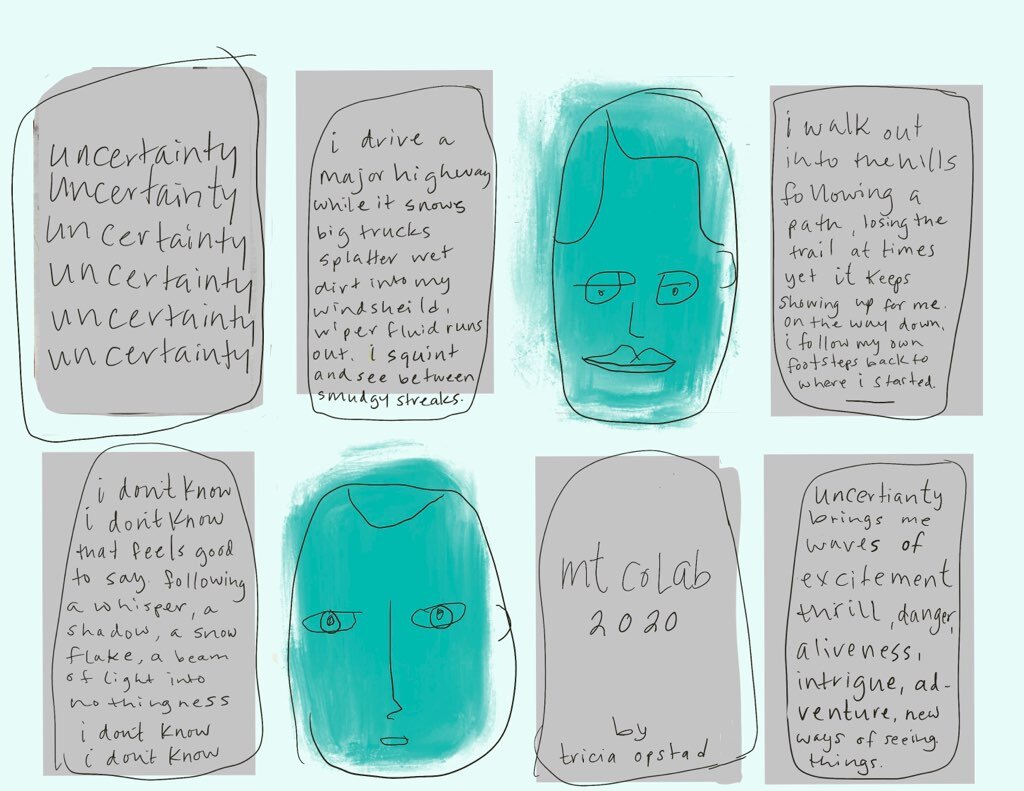 uncertainty
uncertainty
uncertainty
uncertainty
uncertainty
uncertainty
i drive a
major highway
while it snows
big trucks
splatter wet
dirt into my
windsheild.
wiper fluid runs
out. i squint
and see between
smudgy streaks.
i walk out
into the hills
following a
path, losing the
trail at times
yet it keeps
showing up for me.
on the way down,
i follow my own
footsteps back to
where i started.
i don't know
i don't know
that feels good
to say. following
a whisper, a
shadow, a snow
flake, a beam
of light into
nothingness
i don't know
i don't know
mt coLab
2020
by
tricia opstad
uncertianty
brings me
waves of
excitement
thrill, danger,
aliveness,
intrigue, ad-
venture, new
ways of seeing
things.